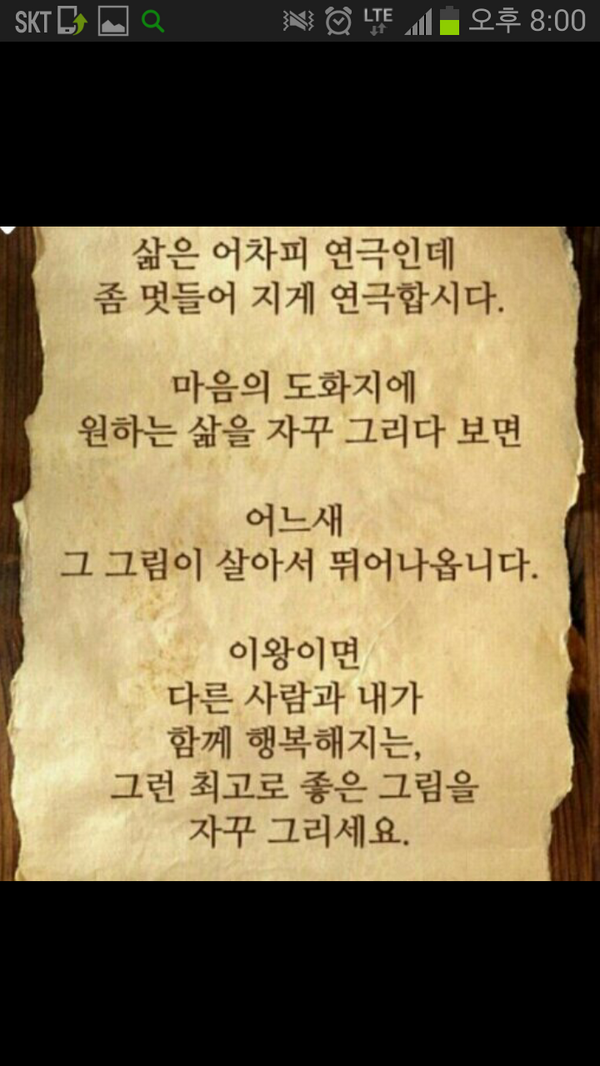 SKT LTE 오후 8:00
삶은 어차피 연극인데
좀 멋들어 지게 연극합시다.
마음의 도화지에
원하는 삶을 자꾸 그리다 보면
어느새
그 그림이 살아서 뛰어나옵니다.
이왕이면
다른 사람과 내가
함께 행복해지는,
그런 최고로 좋은 그림을
자꾸 그리세요.